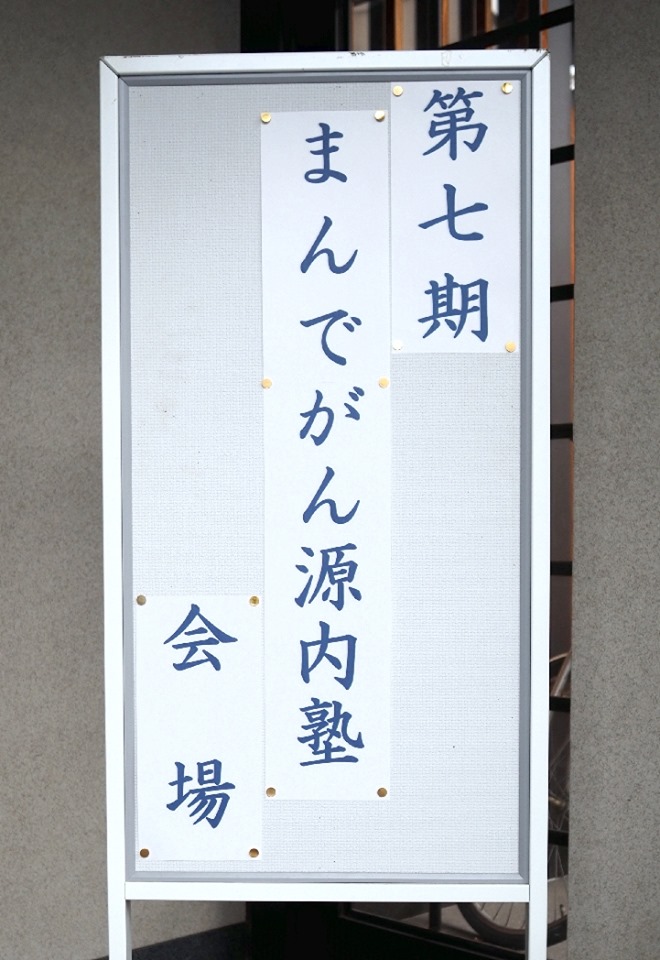 第七期
まんでがん源内塾
会場